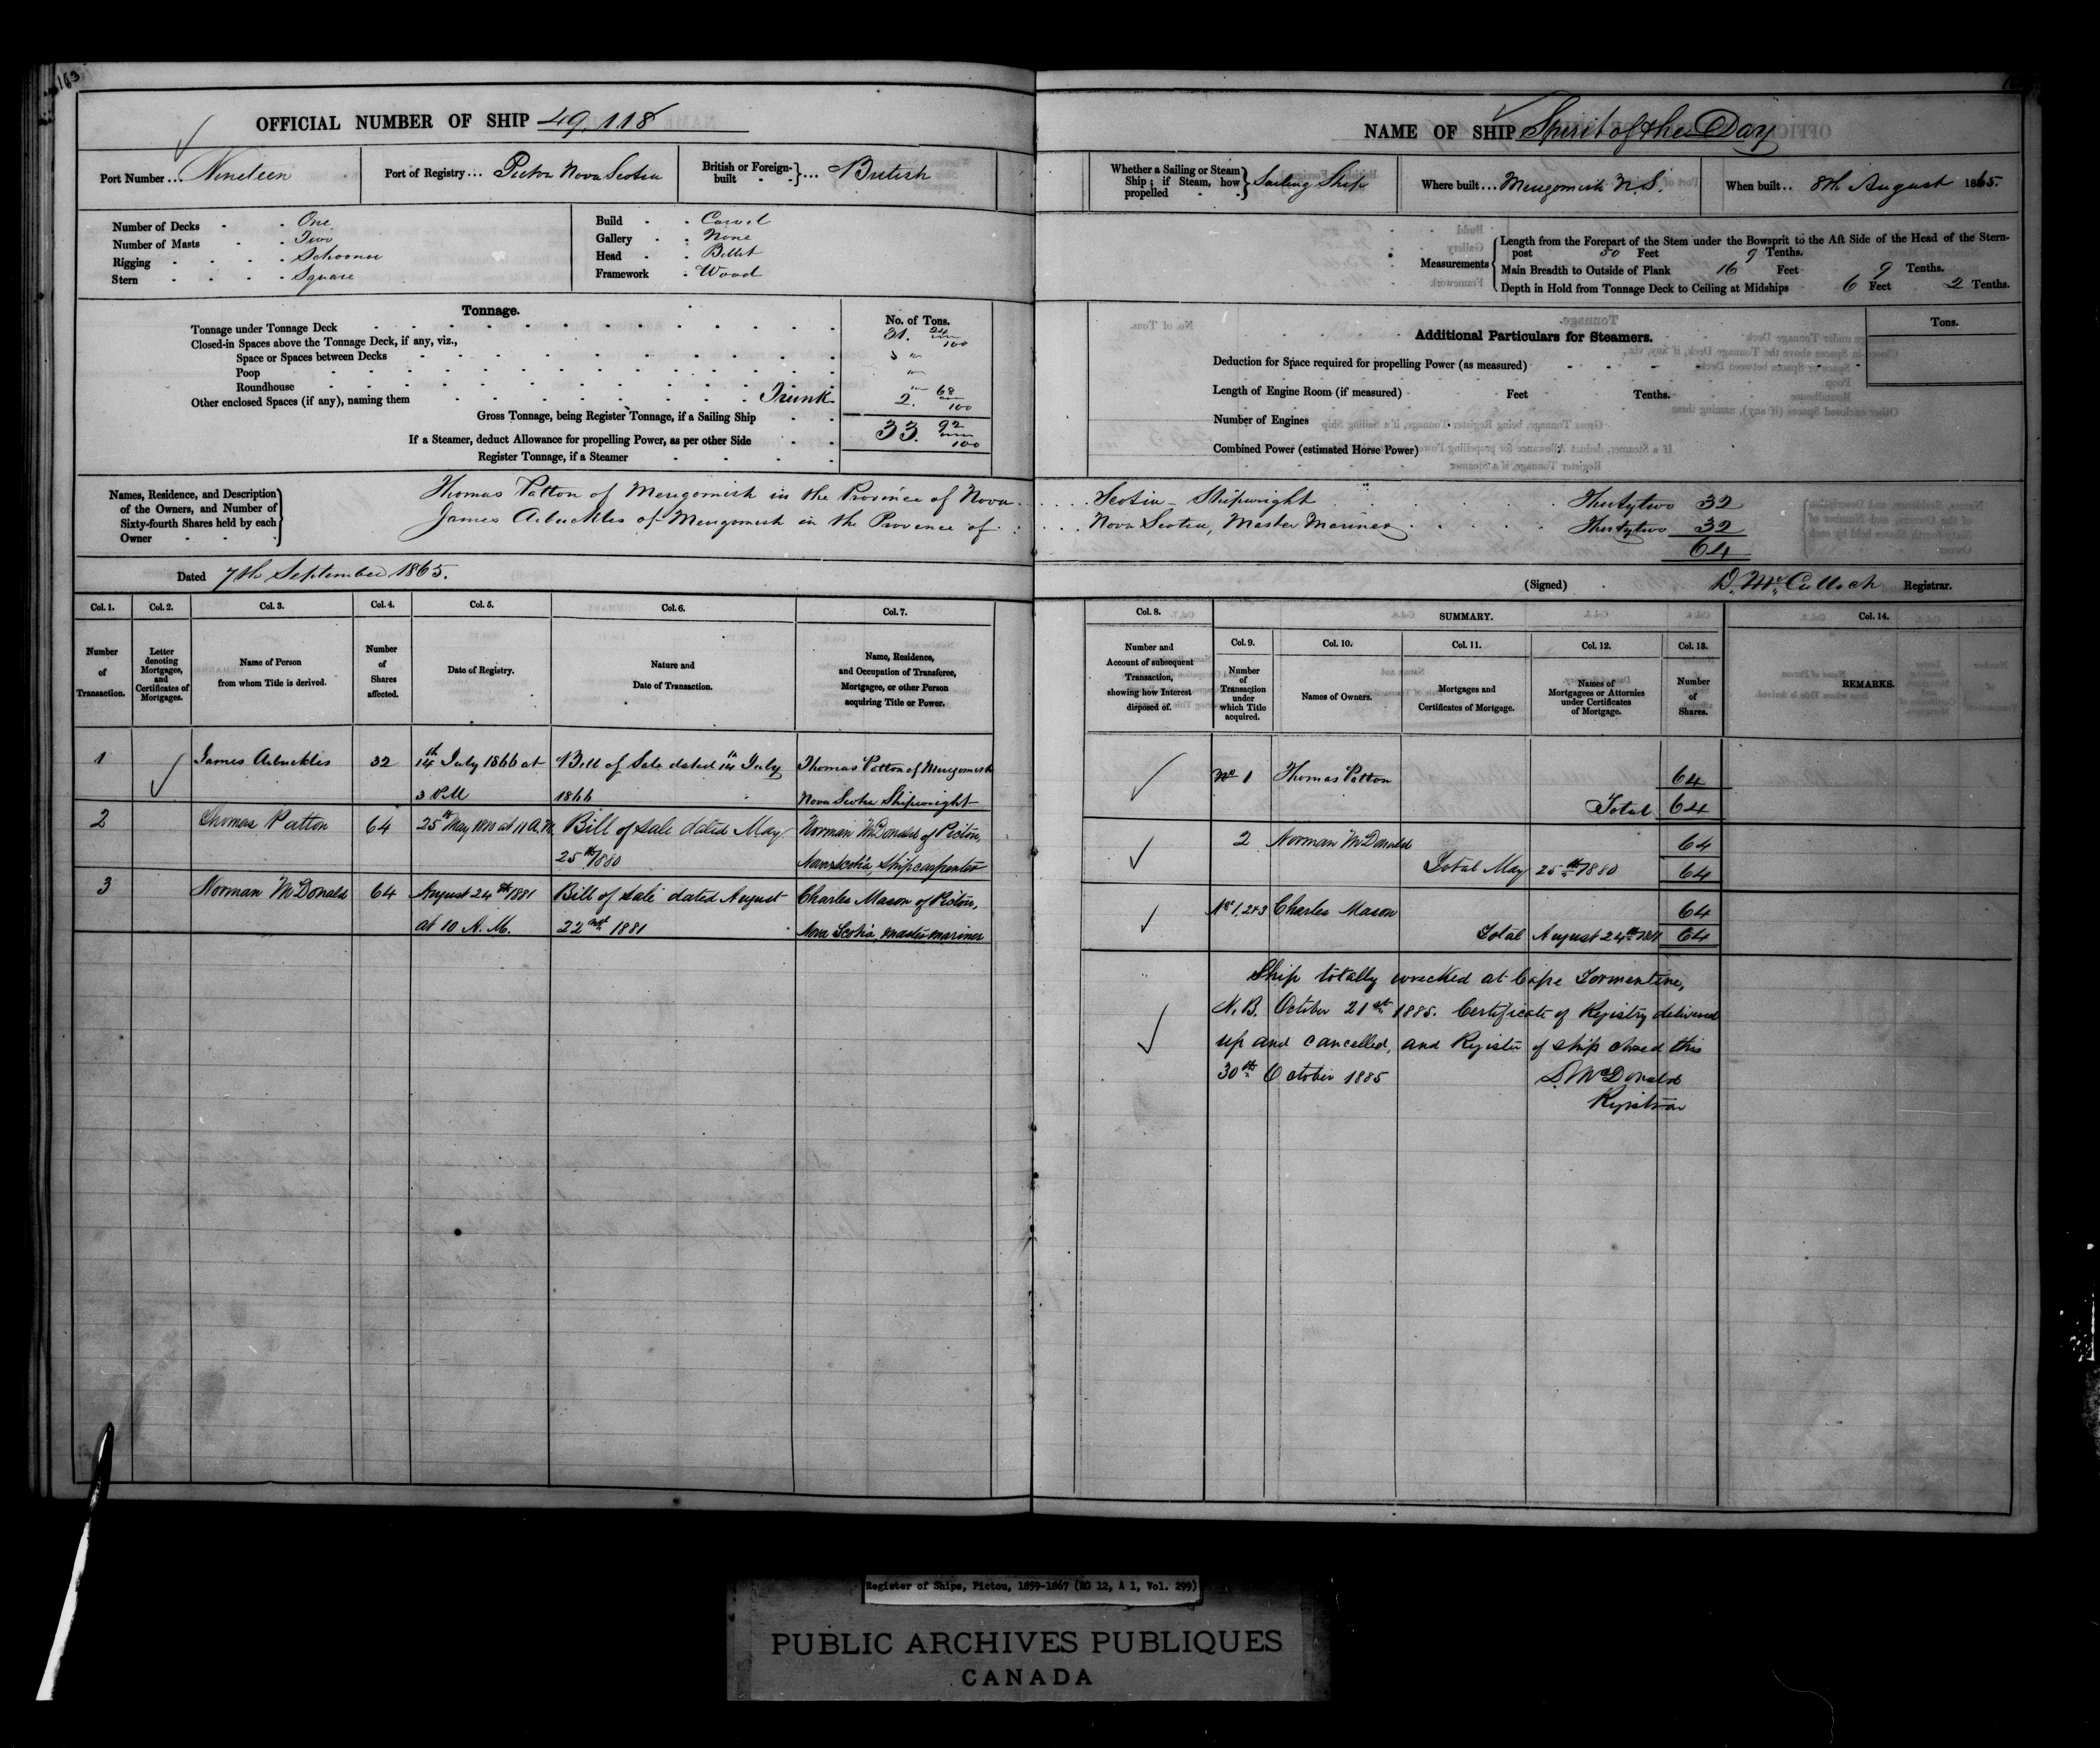 163
OFFICIAL NUMBER OF SHIP 49,118
Port Number ... Nineteen
Port of Registry ... Pictou Nova Scotia
British or Foreign-built } ... British
Number of Decks - - One
Number of Masts - - Two
Rigging - - - - Schooner
Stern - - - - Square
Build - - Carvel
Gallery - - None
Head - - Billet
Framework - Wood
Tonnage.
No. of Tons.
Tonnage under Tonnage Deck 31. 24/100
Closed-in Spaces above the Tonnage Deck, if any, viz.,
Space or Spaces between Decks
Poop
Roundhouse
Other enclosed Spaces (if any), naming them Trunk 2. 68/100
Gross Tonnage, being Register Tonnage, if a Sailing Ship 33. 92/100
If a Steamer, deduct Allowance for propelling Power, as per other Side
Register Tonnage, if a Steamer
Names, Residence, and Description of the Owners, and Number of Sixty-fourth Shares held by each Owner
Thomas Patton of Merigomish in the Province of Nova
James Arbuckles of Merigomish in the Province of
Dated 7th September 1865.
Col. 1. Col. 2. Col. 3. Col. 4. Col. 5. Col. 6. Col. 7.
Number of Transaction.
Letter denoting Mortgages, and Certificates of Mortgages.
Name of Person from whom Title is derived.
Number of Shares affected.
Date of Registry.
Nature and Date of Transaction.
Name, Residence, and Occupation of Transferee, Mortgagee, or other Person acquiring Title or Power.
1 James Arbuckles 32 14th July 1866 at Bill of Sale dated 14th July Thomas Patton of Merigomish
3 P.M 1866 Nova Scotia Shipwright
2 Thomas Patton 64 25th May 1880 at 11 A.M. Bill of Sale dated May Norman McDonald of Pictou,
25th 1880 Nova Scotia, Ship carpenter
3 Norman McDonald 64 August 24th 1881 Bill of Sale dated August Charles Mason of Pictou,
at 10 A.M. 22nd 1881 Nova Scotia, master mariner
NAME OF SHIP Spirit of the Day
Whether a Sailing or Steam Ship; if Steam, how propelled } Sailing Ship
Where built ... Merigomish N.S.
When built .. 8th August 1865.
Measurements
Length from the Forepart of the Stem under the Bowsprit to the Aft Side of the Head of the Stern-
post 50 Feet 9 Tenths.
Main Breadth to Outside of Plank 16 Feet 9 Tenths.
Depth in Hold from Tonnage Deck to Ceiling at Midships 6 Feet 2 Tenths.
Additional Particulars for Steamers.
Tons.
Deduction for Space required for propelling Power (as measured)
Length of Engine Room (if measured) Feet Tenths.
Number of Engines
Combined Power (estimated Horse Power)
Scotia - Shipwright Thirtytwo 32
Nova Scotia, Master Mariner Thirtytwo 32
64
(Signed) D. McCulloch Registrar.
Col. 8. SUMMARY. Col. 14.
Col. 9. Col. 10. Col. 11. Col. 12. Col. 13.
Number and Account of subsequent Transaction, showing how Interest disposed of.
Number of Transaction under which Title acquired.
Names of Owners.
Mortgages and Certificates of Mortgage.
Names of Mortgagees or Attornies under Certificates of Mortgage.
Number of Shares.
REMARKS.
No 1 Thomas Patton 64
Total 64
2 Norman McDonald 64
Total May 25th 1880 64
Nos 1, 2 & 3 Charles Mason 64
Total August 24th 1881 64
Ship totally wrecked at Cape Tormentine,
N.B. October 21st 1885. Certificate of Registry delivered
up and cancelled, and Register of ship closed this
30th October 1885 D. McDonald
Registrar
Register of Ships, Pictou, 1859-1867 (RG 12, A 1, Vol. 299)
PUBLIC ARCHIVES PUBLIQUES
CANADA